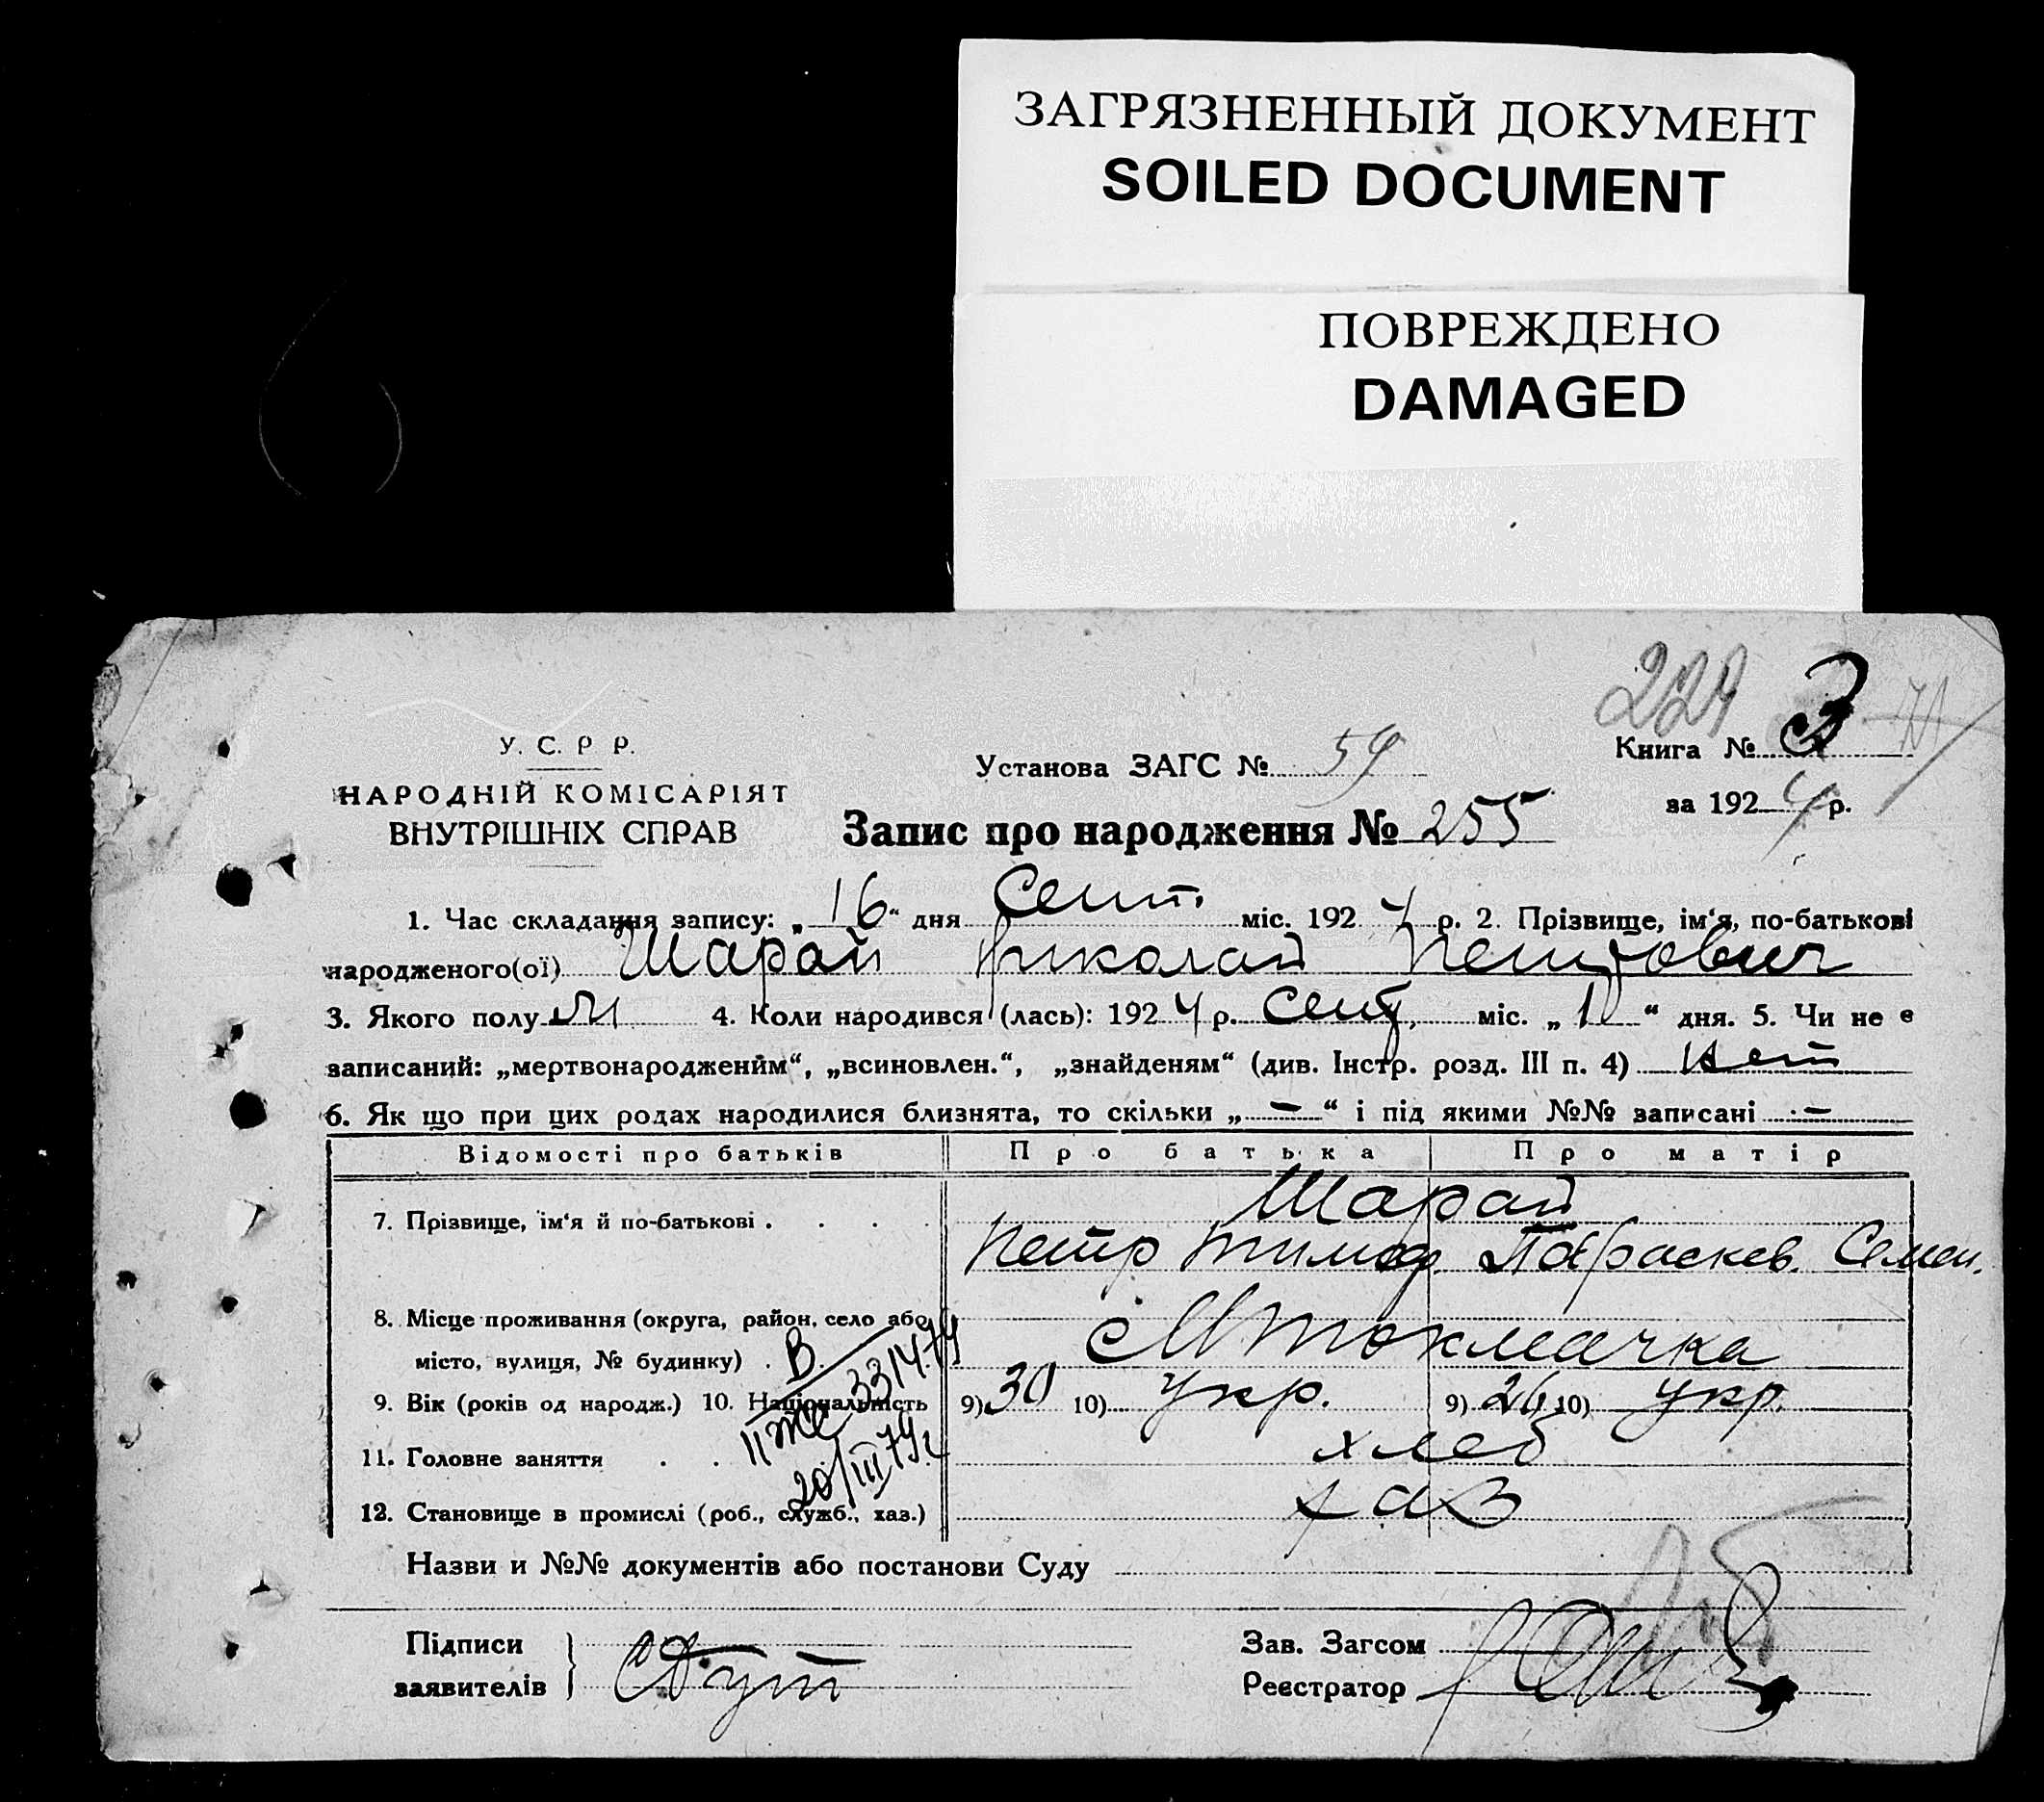 ЗАГРЯЗНЕННЫЙ ДОКУМЕНТ
SOILED DOCUMENT
ПОВРЕЖДЕНО
DAMAGED
У. С. Р Р.
НАРОДНІЙ КОМІСАРІЯТ
ВНУТРІШНІХ СПРАВ
Установа ЗАГС № 59
Книга № 3
за 1924 р.
Запис про народження № 255
1. Час складання запису: „16“ дня Сент. міс. 1924 р. 2. Прізвище, ім‘я, по-батькові
народженого(ої) Шарай Николай Петрович
3. Якого полу М 4. Коли народився (лась): 1924 р. Сент. міс. „ “ дня. 5. Чи не є
записаний: „мертвонародженим“, „всиновлен.“, „знайденям“ (див. Інстр. розд. III п. 4) нет
6. Як що при цих родах народилися близнята, то скільки „—“ і під якими №№ записані —
Відомості про батьків Про батька Про матір
Шарай
7. Прізвище, ім‘я й по-батькові
Петр Тимоф. Параскев. Семен.
8. Місце проживання (округа, район, село або
місто, вулиця, № будинку) с М Токмачка
9. Вік (років од народж.) 10. Національність 9) 30 10) Укр. 9) 26 10) Укр.
11. Головне заняття хлеб
12. Становище в промислі (роб., служб., хаз.) хаз
20/III 79 г
Назви и №№ документів або постанови Суду
Підписи
заявителів
Зав. Загсом
Реєстратор